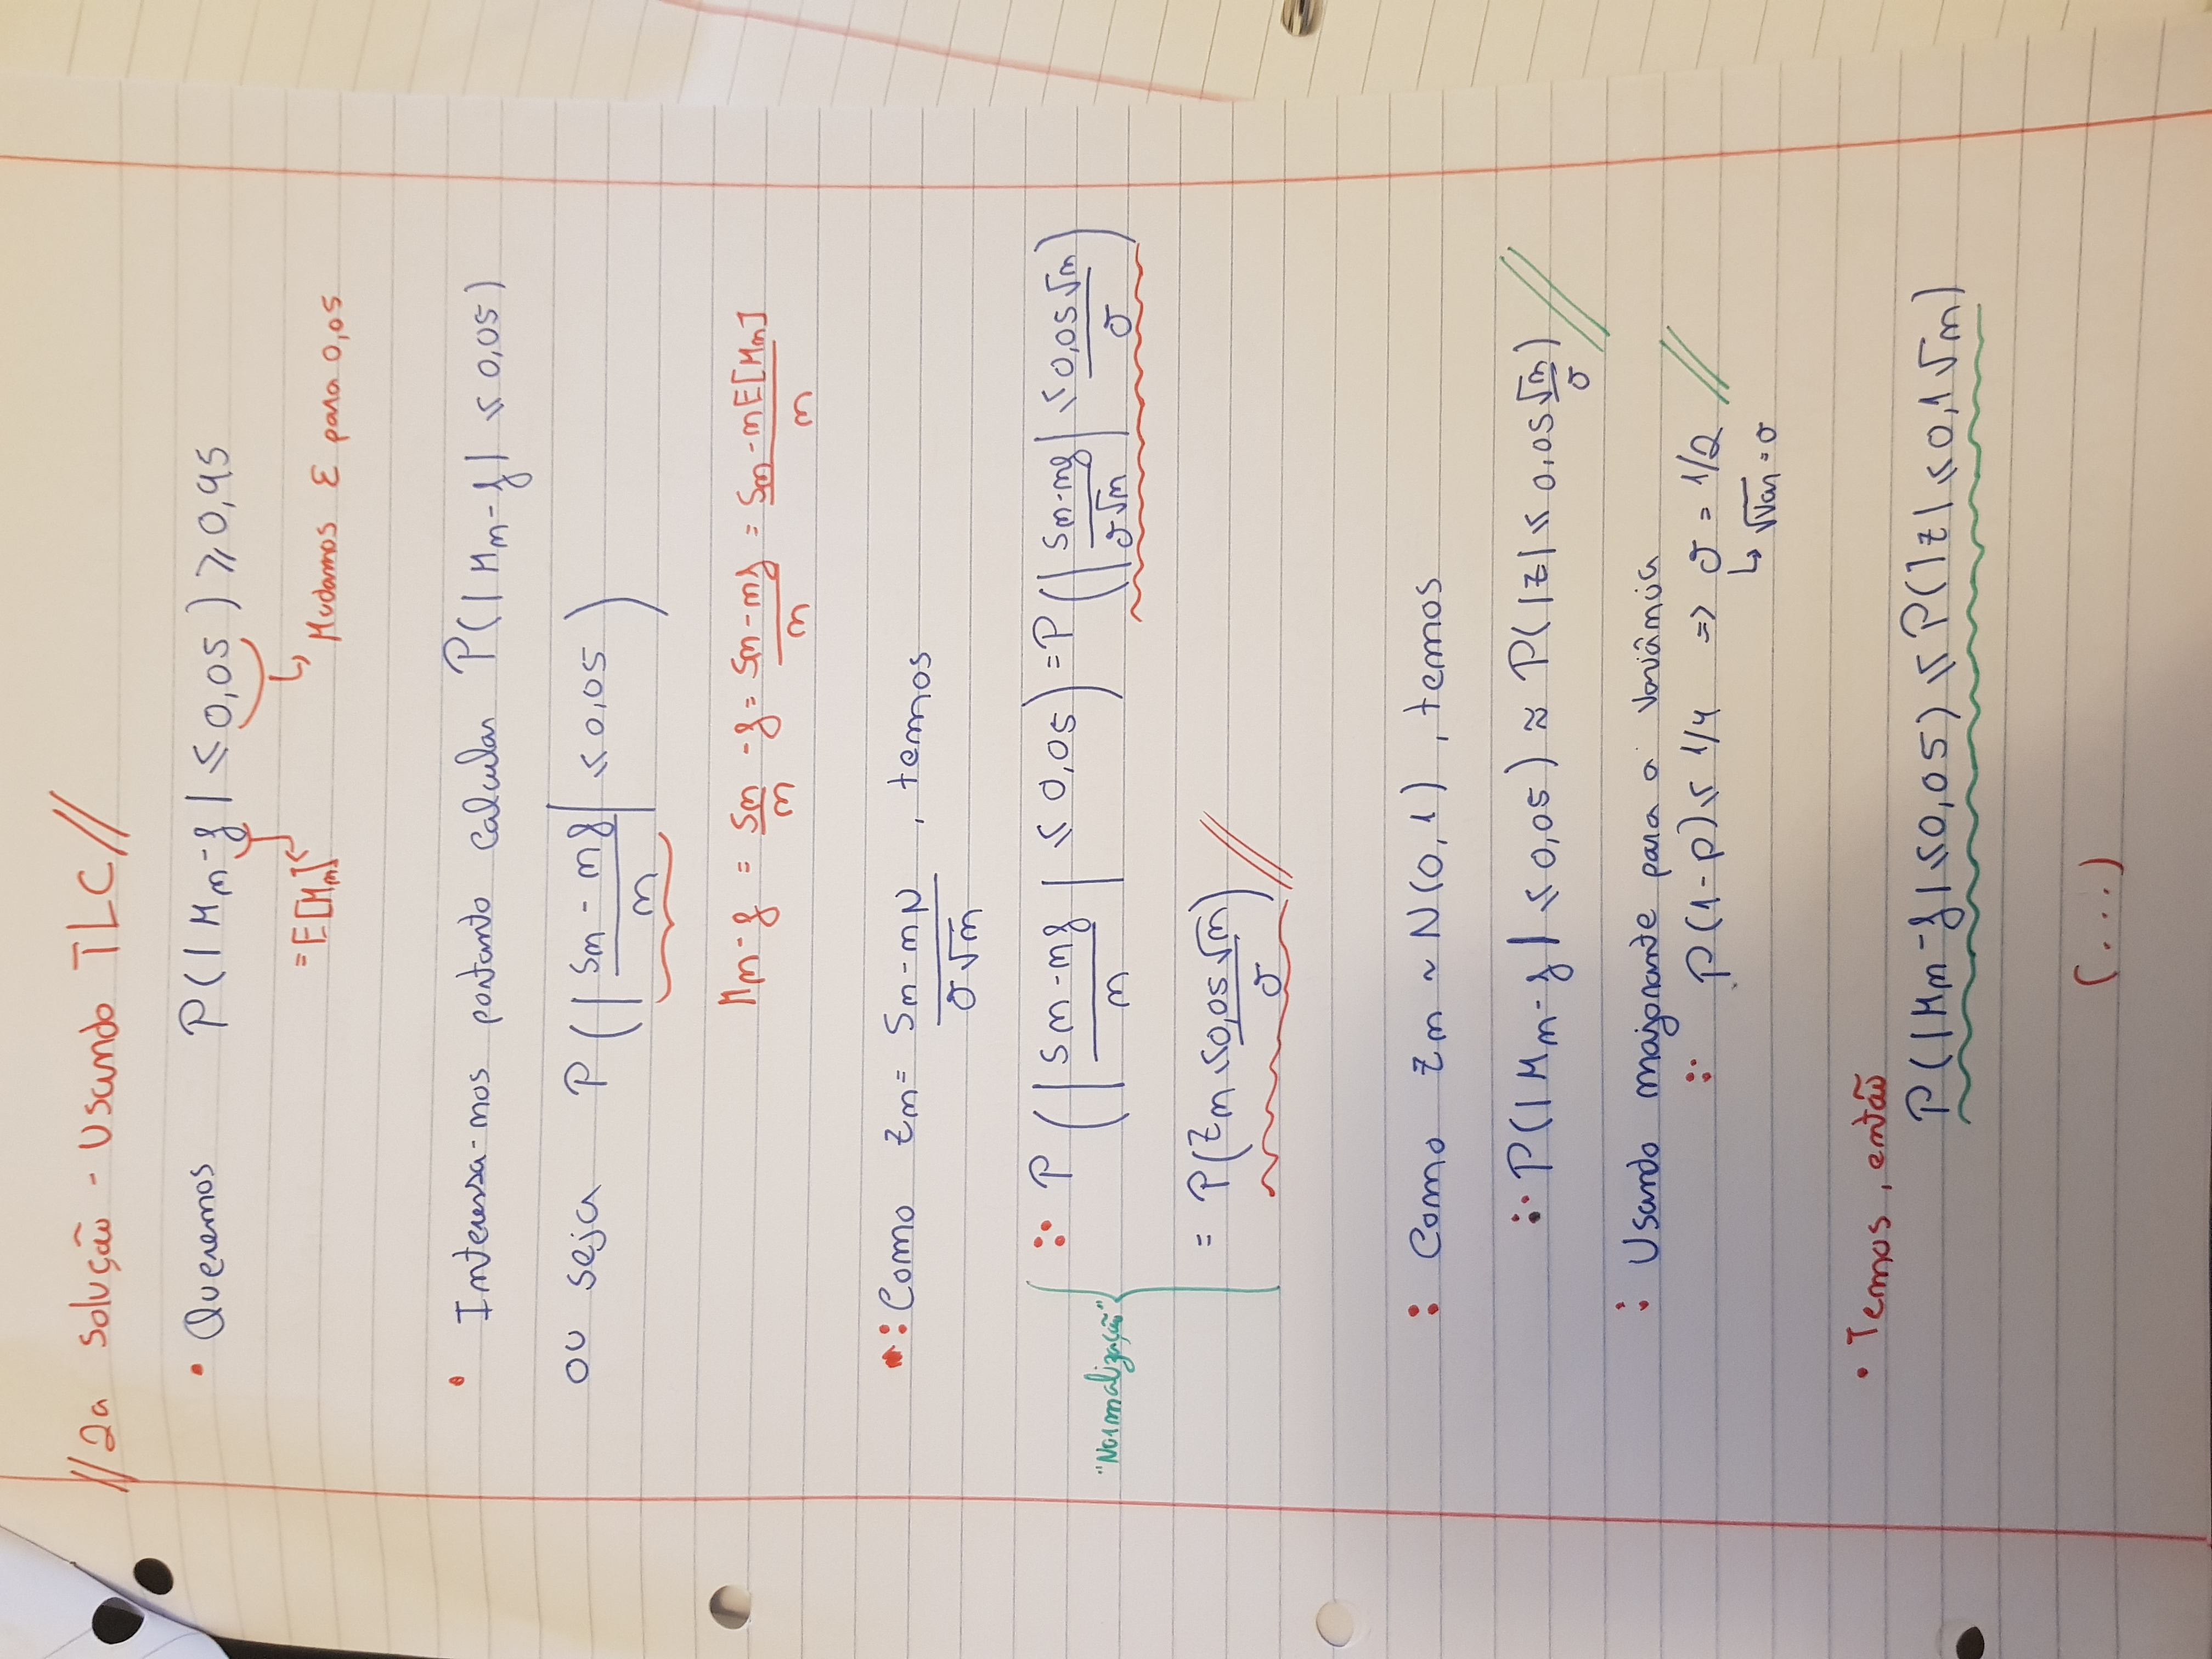 // 2a solução - Usando TLC //
• Queremos P(|Mn-f| ≤ 0,05) ≥ 0,95
= E[Mn] ↳ Mudamos ε para 0,05
• Interessa-nos portanto calcular P(|Mn-f| ≤ 0,05)
ou seja P(|(Sn - nf)/n| ≤ 0,05)
Mn-f = Sn/n - f = (Sn-nf)/n = (Sn-nE[Mn])/n
: Como Zn = (Sn-nμ)/(σ√n) , temos
"Normalização" ∴ P(|(Sn-nf)/n| ≤ 0,05) = P(|(Sn-nf)/(σ√n)| ≤ (0,05√n)/σ)
= P(Zn ≤ (0,05√n)/σ) //
: Como Zn ~ N(0,1) , temos
∴ P(|Mn-f| ≤ 0,05) ≈ P(|Z| ≤ 0,05 √n/σ) //
: Usando majorante para a variância
∴ p(1-p) ≤ 1/4 => σ = 1/2 //
↳ √Var = σ
• Temos, então
P(|Mn-f| ≤ 0,05) ≤ P(|Z| ≤ 0,1√n)
(...)